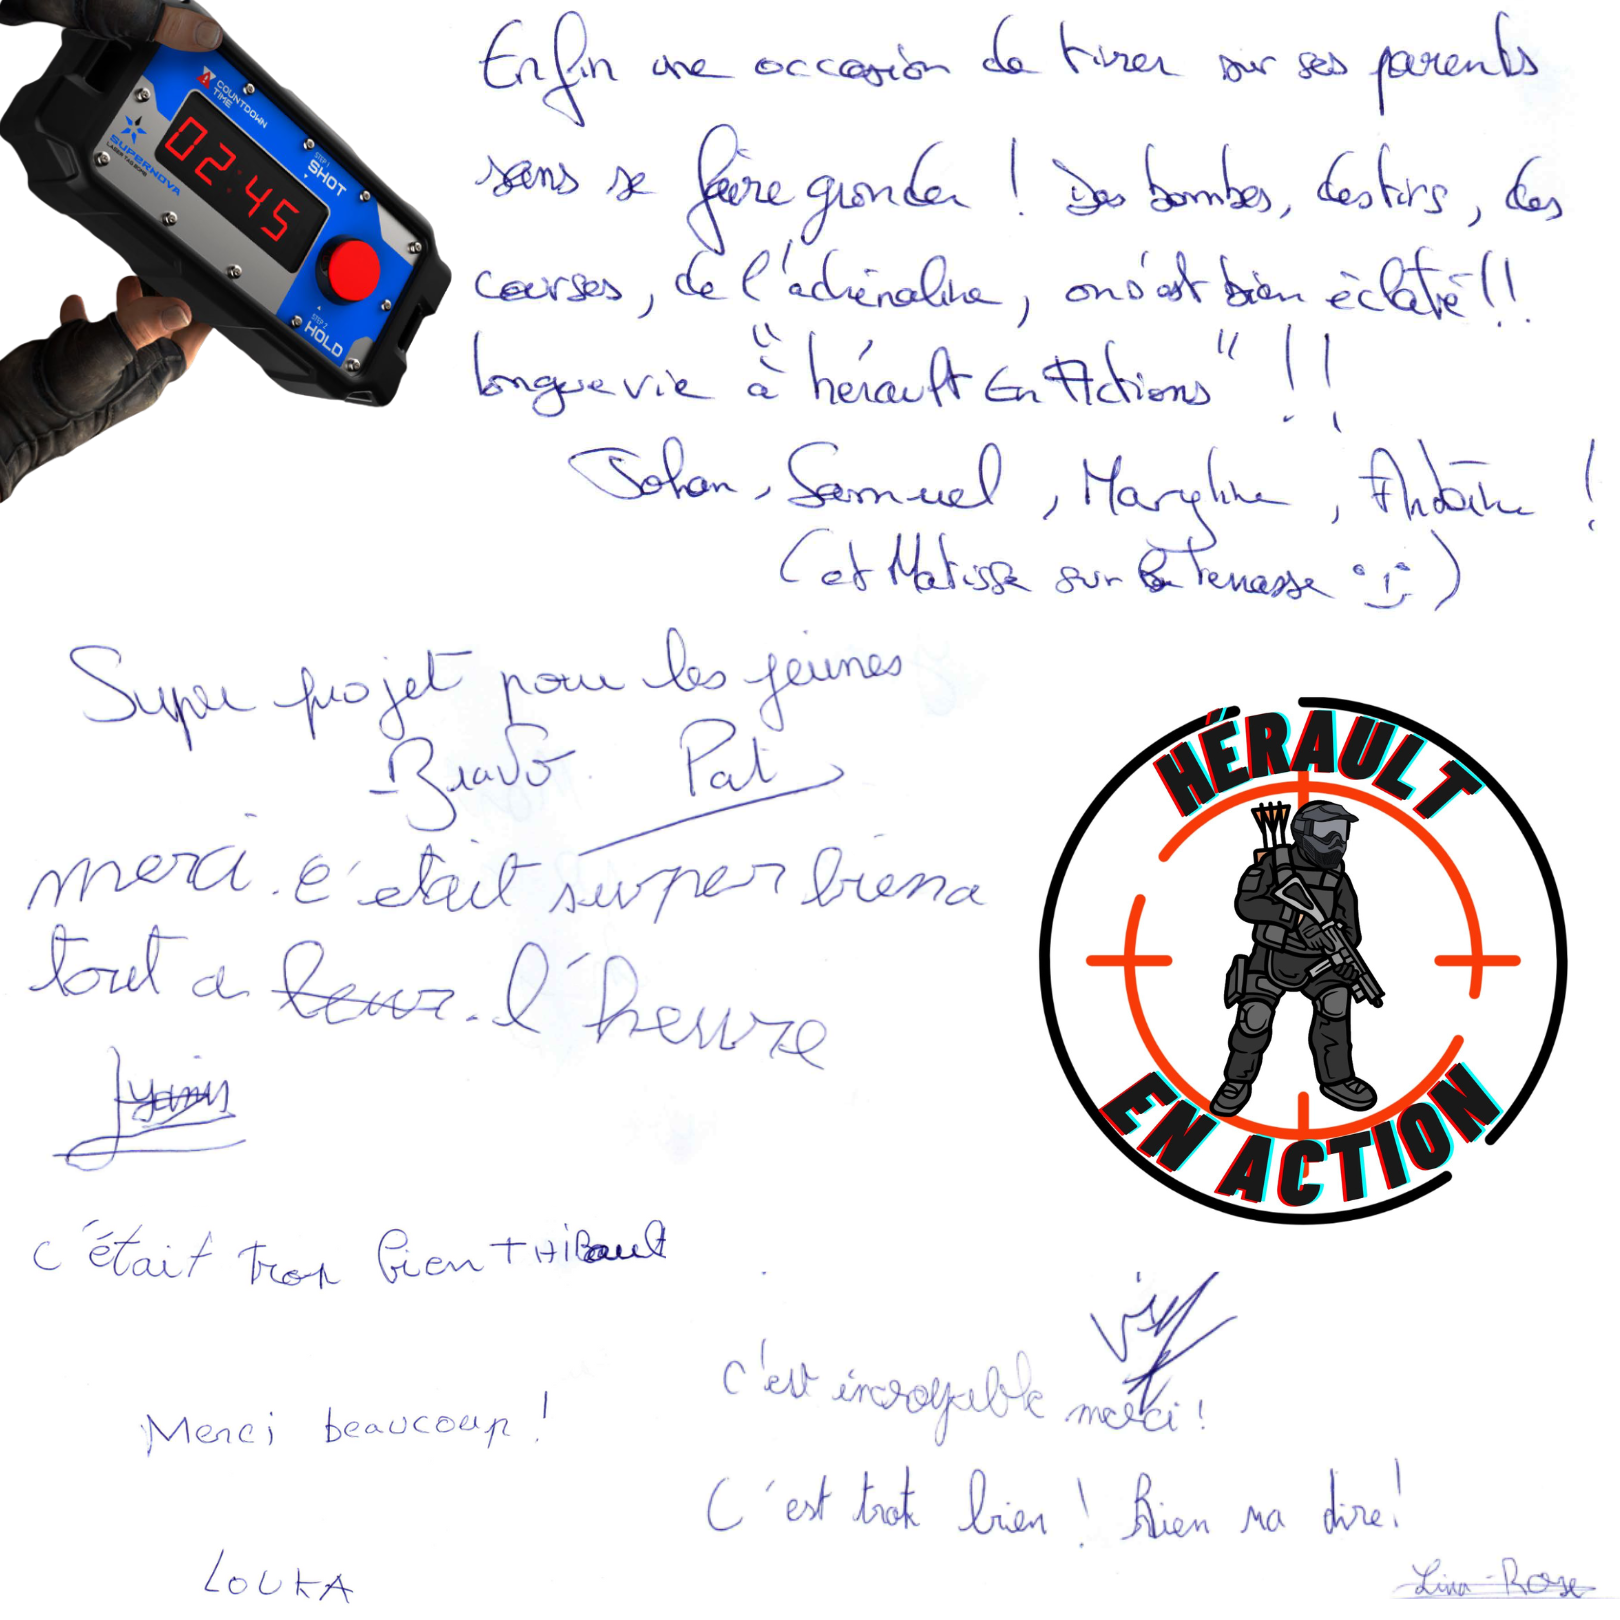 COUNTDOWN
TIME
SUPERNOVA
LASER TAG BOMB
02:45
STEP 1
SHOT
STEP 2
HOLD
Enfin une occasion de tirer sur ses parents
sans se faire gronder ! Des bombes, des tirs, des
courses, de l'adrénaline, on s'est bien éclaté !!
longue vie "à hérault En Actions" !!
Johan, Samuel, Maryline, Antoine !
(et Matisse sur la Terrasse :))
Super projet pour les jeunes
-Bravo. Pat
merci. c'etait super biena
tout a leur. l'heure
yanis
HÉRAULT
EN ACTION
c'était trop bien THIBault
c'est incroyable merci !
Merci beaucoup !
C'est trok bien ! Rien na dire !
LOUKA
Lina-Rose